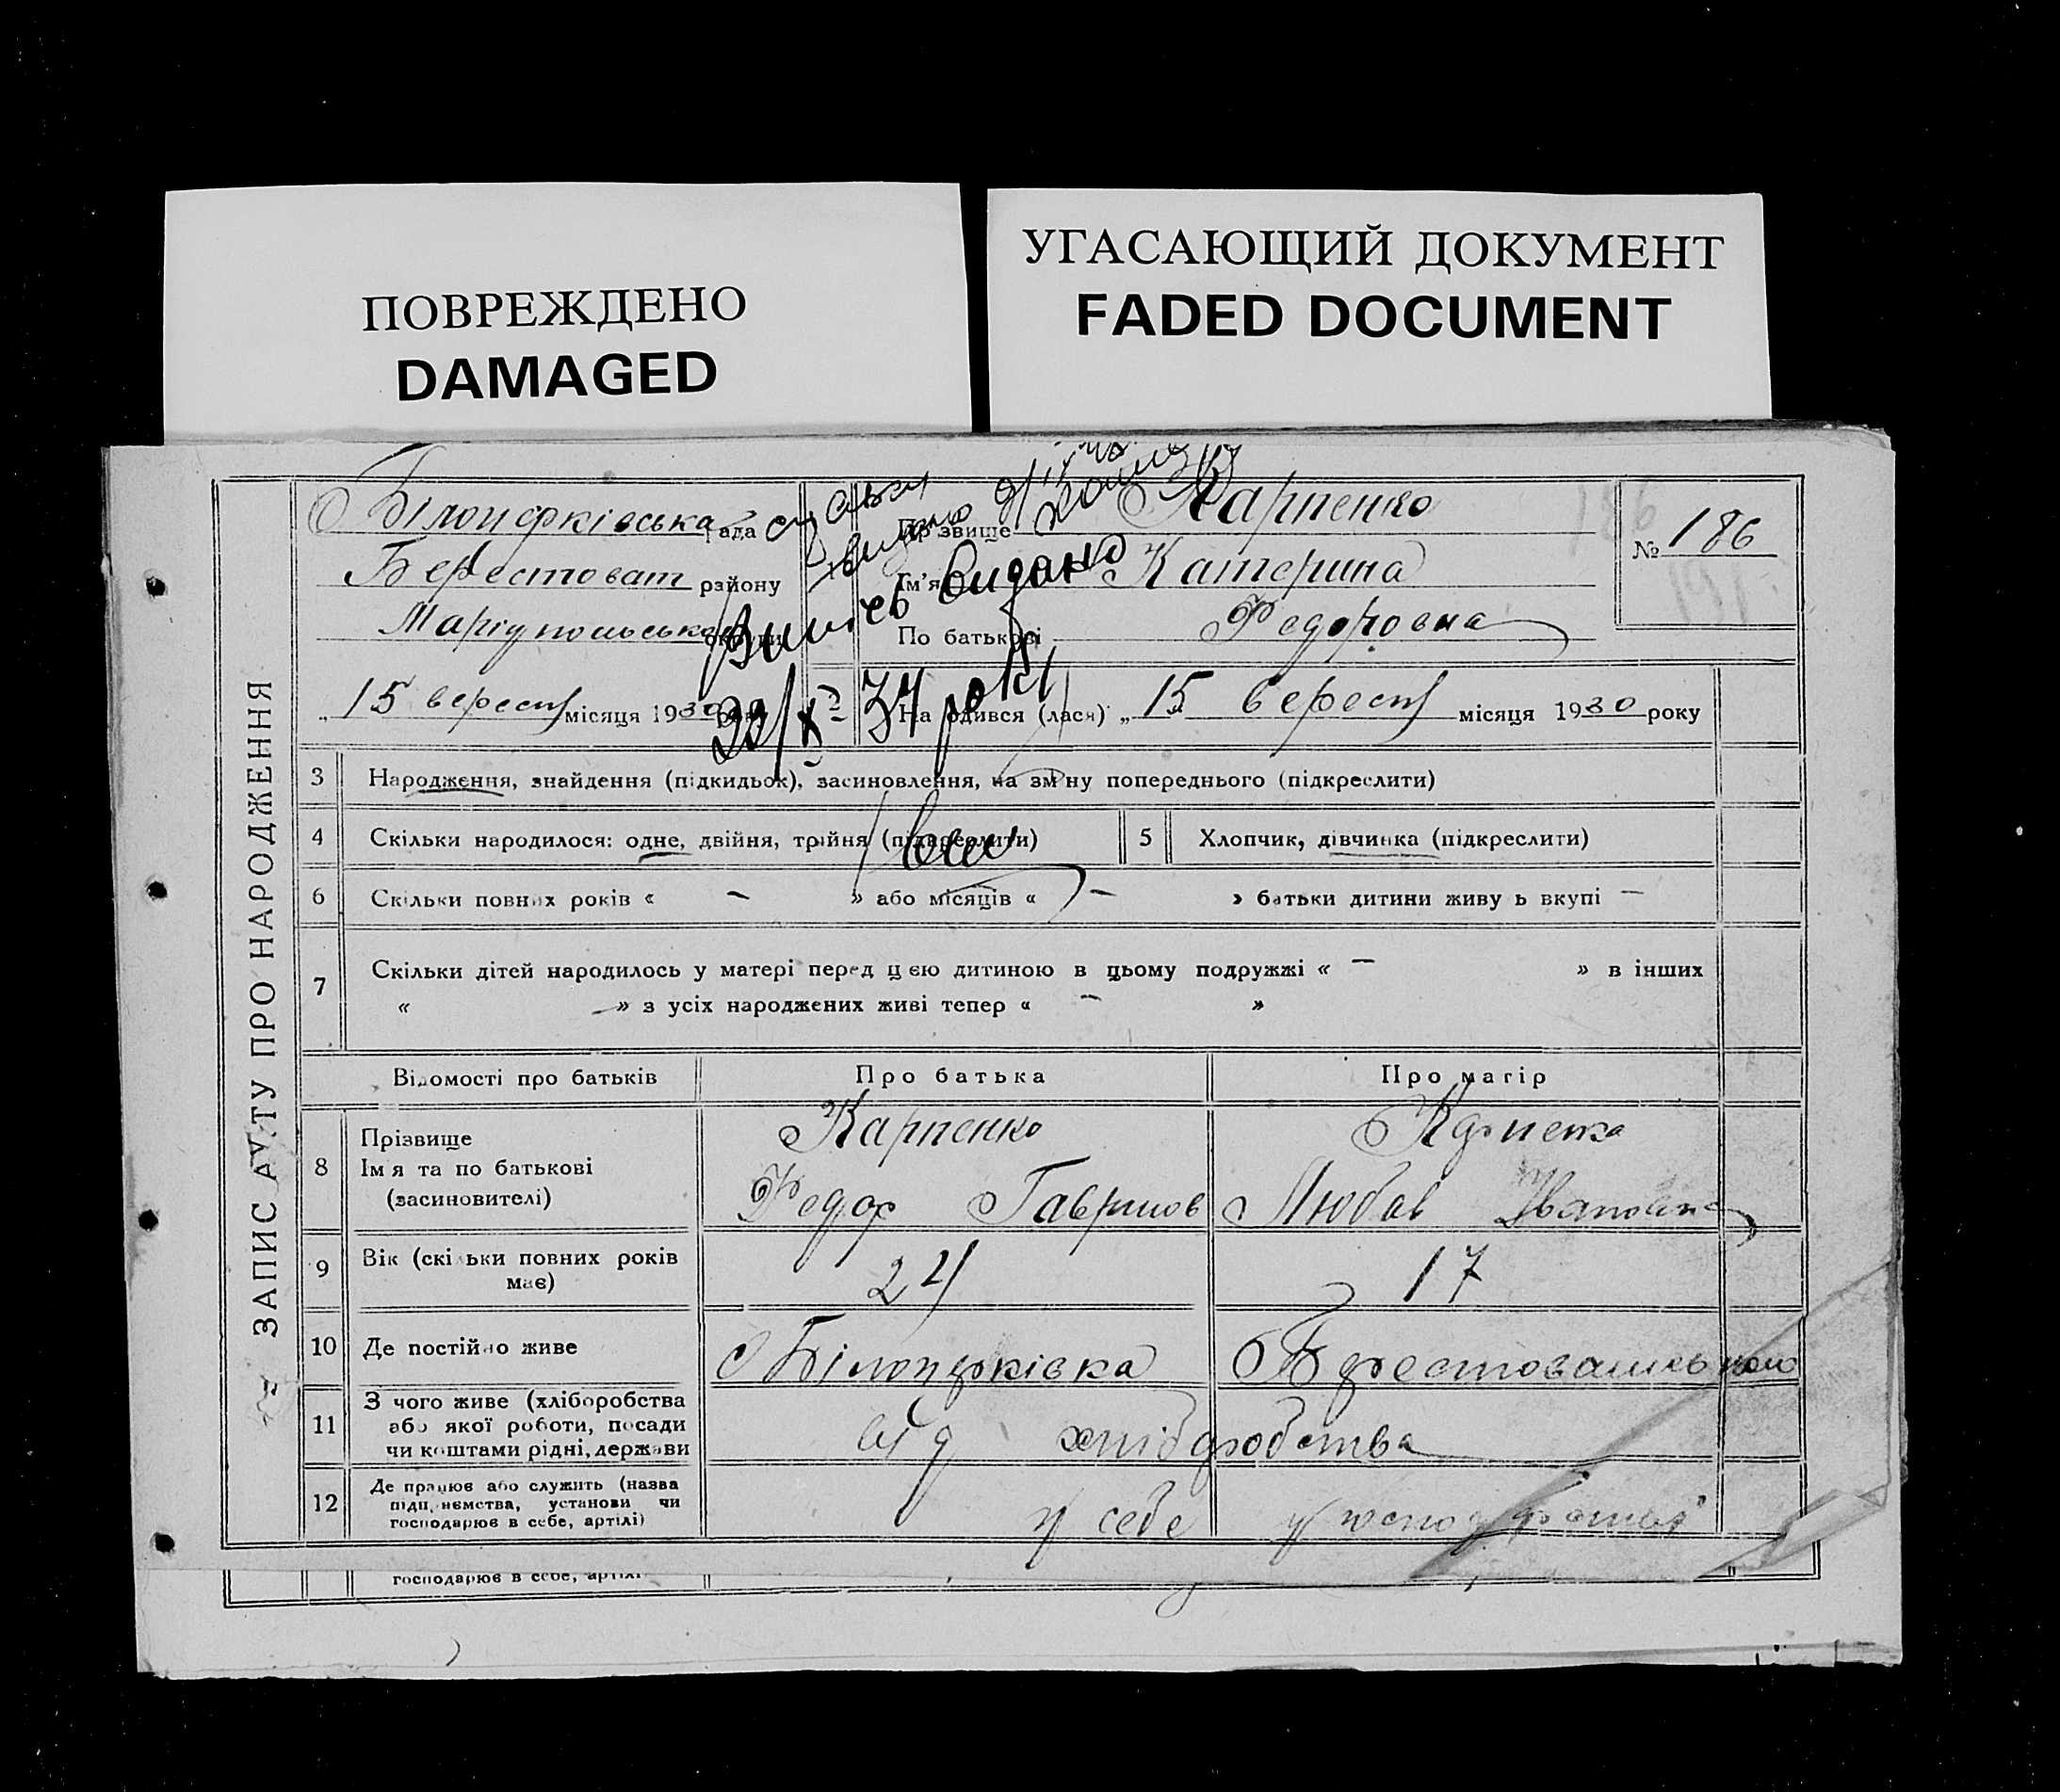 ПОВРЕЖДЕНО
DAMAGED
УГАСАЮЩИЙ ДОКУМЕНТ
FADED DOCUMENT
ЗАПИС АКТУ ПРО НАРОДЖЕННЯ
Білоцерківська рада
Прізвище Карпенко
№ 186
Берестоват району
Ім'я Катерина
Маріупольської округи
По батькові Федоровна
Витяг видано
22/X 34 року
„ 15 вересн місяця 1930 року
Народився (лася) „ 15 вересн місяця 1930 року
3 Народження, знайдення (підкидьок), засиновлення, на зміну попереднього (підкреслити)
4 Скільки народилося: одне, двійня, трійня (підкреслити)
5 Хлопчик, дівчинка (підкреслити)
6 Скільки повних років « – » або місяців « – » батьки дитини живуть вкупі –
7 Скільки дітей народилось у матері перед цією дитиною в цьому подружжі « – » в інших
« – » з усіх народжених живі тепер « – »
Відомості про батьків Про батька Про матір
8 Прізвище
Ім я та по батькові
(засиновителі)
Карпенко
Федор Гаврилов
Карпенко
Любов Івановна
9 Вік (скільки повних років
має)
24
17
10 Де постійно живе
Білоцерківка
11 З чого живе (хліборобства
або якої роботи, посади
чи коштами рідні, держави
від хліборобства
12 Де працює або служить (назва
підприємства, установи чи
господарює в себе, артілі)
у себе у
господарює в себе, артілі